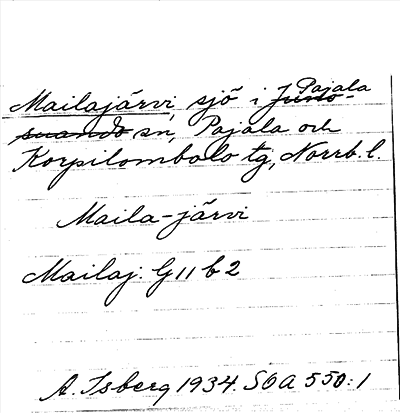 Mailajärvi, sjö i Juno- Pajala
suando sn, Pajala och
Korpilombolo tg, Norrb. l.
Maila-järvi
Mailaj. G 11 b 2
A. Isberg 1934. SOA 550:1